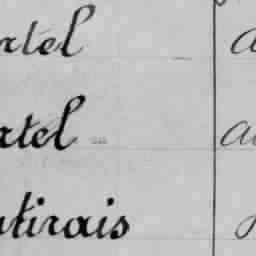 rtel
rtel
ntirais